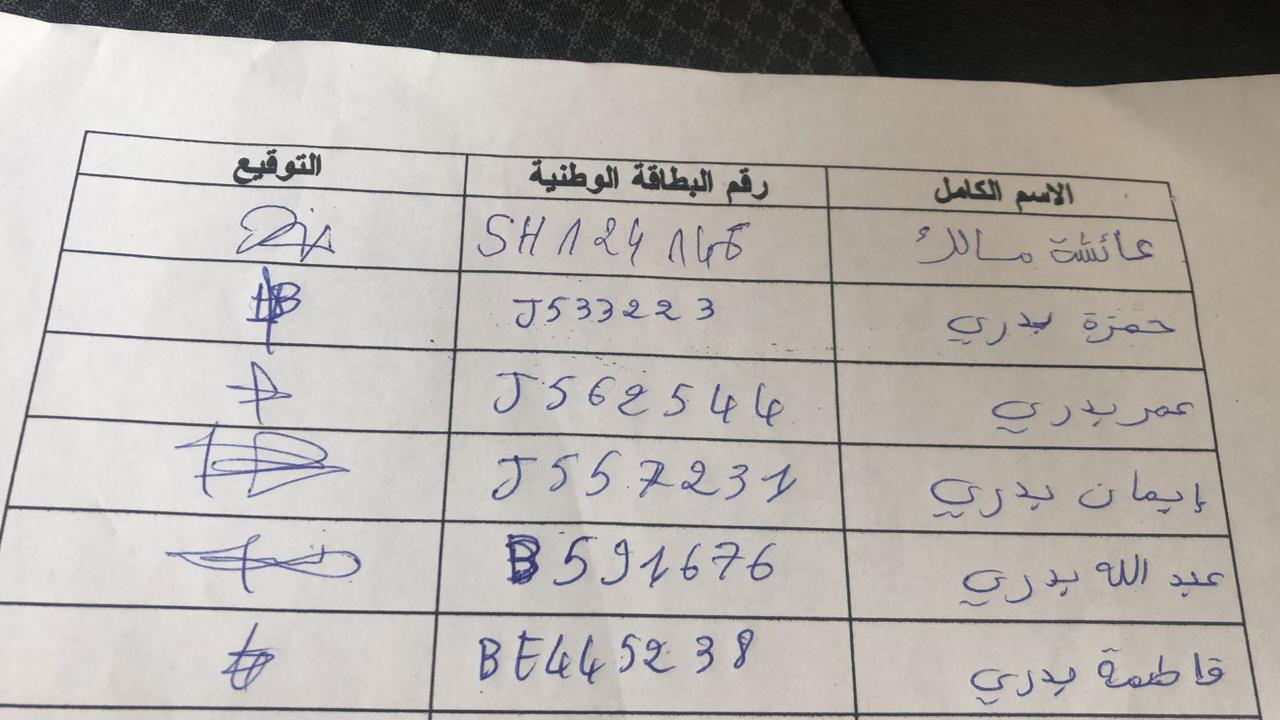 الاسم الكامل رقم البطاقة الوطنية التوقيع
عائشة مسالك SH124146
حمزة بدري J533223
عمر بدري J562544
إيمان بدري J557231
عبد الله بدري B591676
فاطمة بدري BE445238